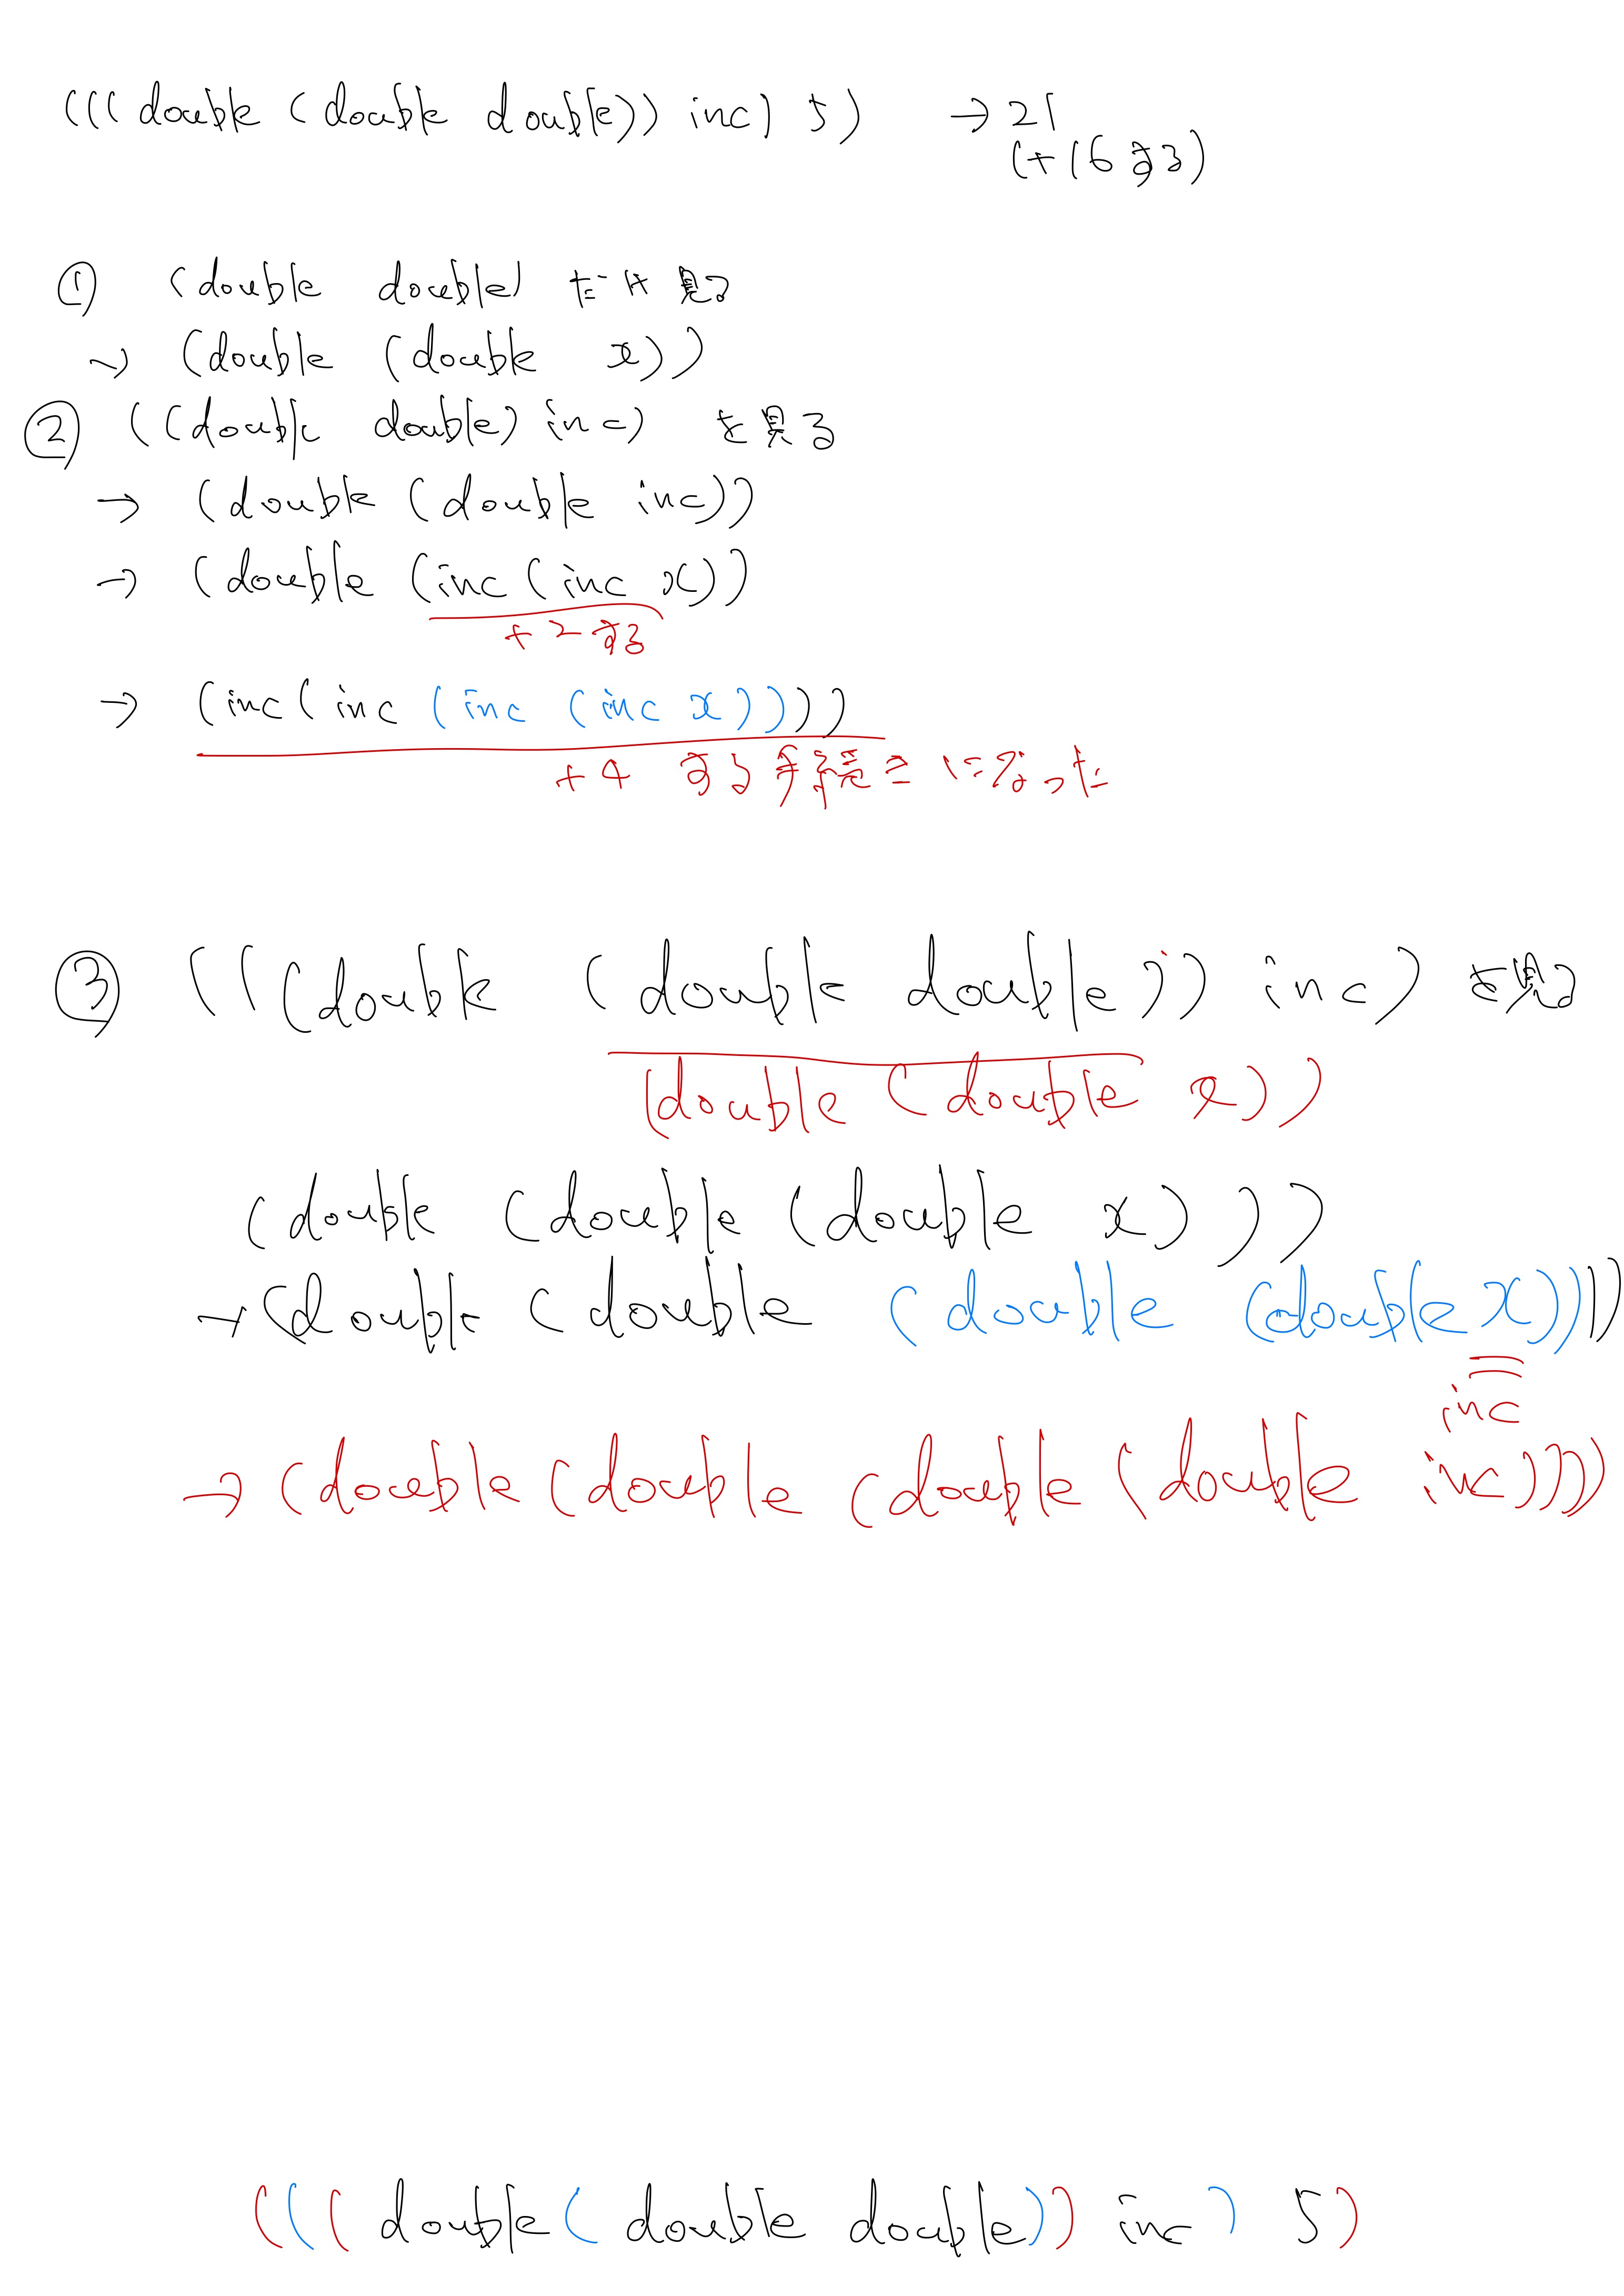 (((double (double double)) inc) 5) → 21
(+16する)
① (double double) だけ見る
→ (double (double x))
② ((double double) inc) を見る
→ (double (double inc))
→ (double (inc (inc x))
+2する
→ (inc (inc (inc (inc x))))
+4 する手続きになった
③ (((double (double double)) inc) を見る
(double (double x))
(double (double (double x)))
→ (double (double (double (double x))))
inc
→ (double (double (double (double inc))))
(((double (double double)) inc) 5)